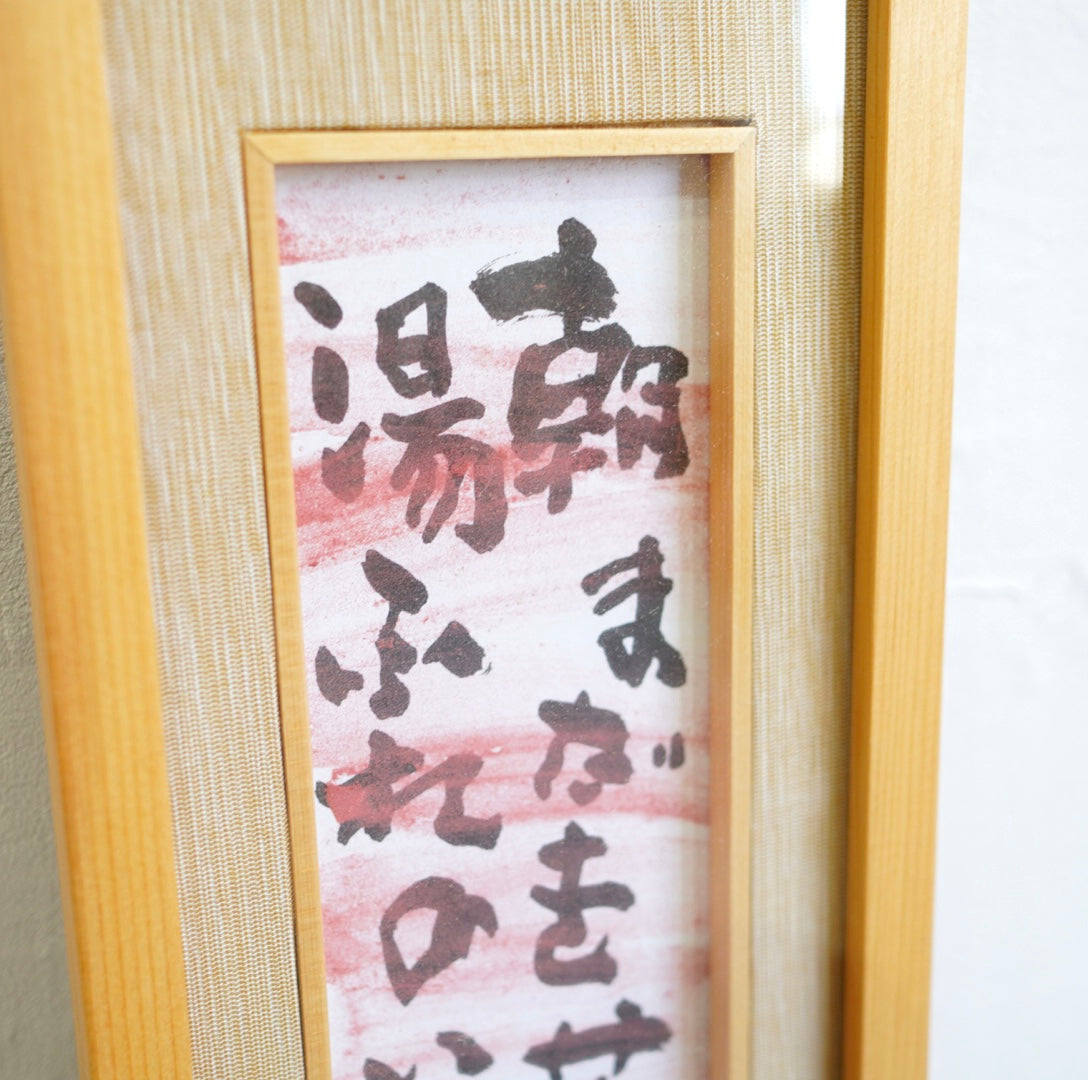 朝まだきせ
湯ふれの